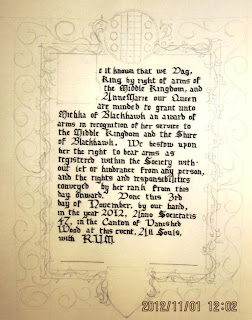 e it known that we Dag,
King by right of arms of
the Middle Kingdom, and
AnneMarie our Queen
are minded to grant unto
Michka of Blackhawk an award of
arms in recognition of her service to
the Middle Kingdom and the Shire
of Blackhawk. We bestow upon
her the right to bear arms as
registered within the Society with-
out let or hindrance from any person,
and the rights and responsibilities
conveyed by her rank from this
day onward. Done this 3rd
day of November, by our hand,
in the year 2012, Anno Societatis
47, in the Canton of Vanished
Wood at this event, All Souls,
with R.U.M.
2012/11/01 12:02